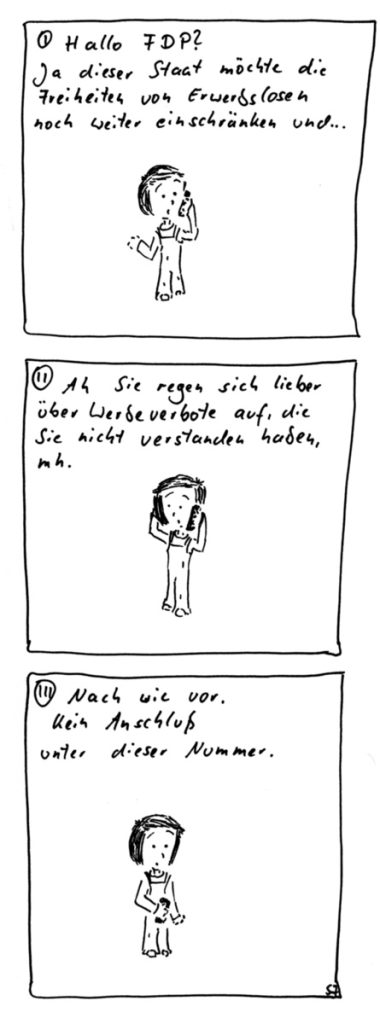 I Hallo FDP?
Ja dieser Staat möchte die
Freiheiten von Erwerbslosen
noch weiter einschränken und...
II Ah Sie regen sich lieber
über Werbeverbote auf, die
Sie nicht verstanden haben,
mh.
III Nach wie vor.
Kein Anschluß
unter dieser Nummer.